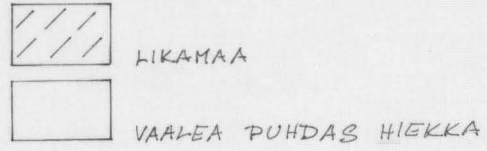 LIKAMAA
VAALEA PUHDAS HIEKKA